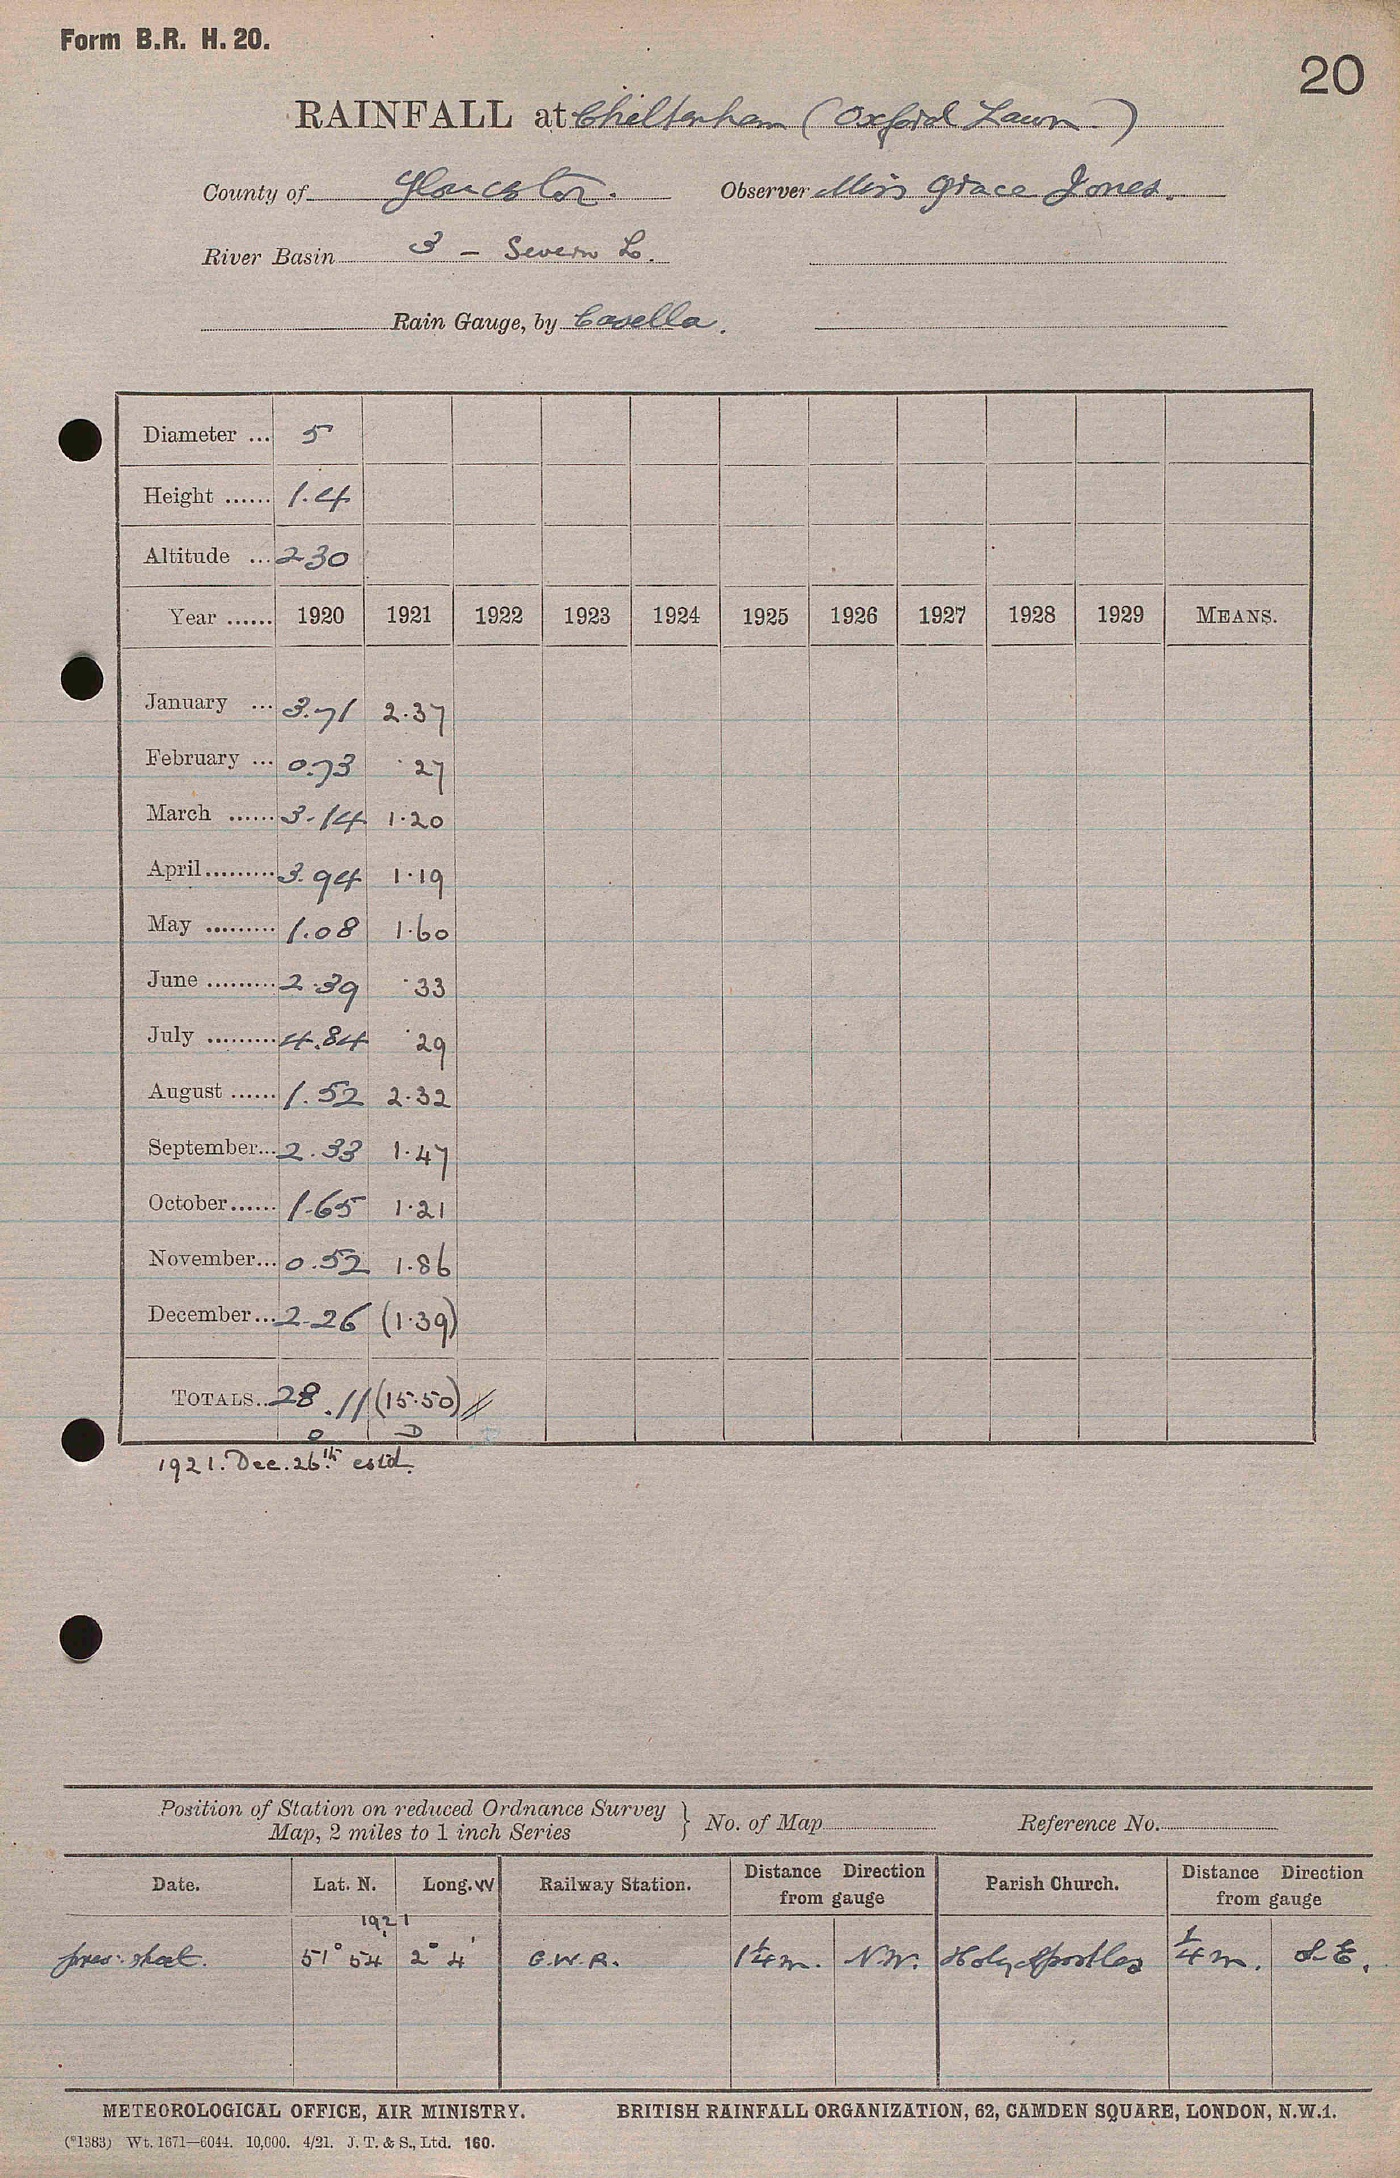 Form B.R. H. 20.
20
RAINFALL at Cheltenham (Oxford Lawn)
County of Gloucester. Observer Miss Grace Jones.
River Basin 3 - Severn L.
Rain Gauge, by Casella.
Diameter ... 5
Height ...... 1.4
Altitude ... 230
Year ...... 1920 1921 1922 1923 1924 1925 1926 1927 1928 1929 MEANS.
January ... 3.71 2.37
February ... 0.73 .27
March ...... 3.14 1.20
April ......... 3.94 1.19
May ......... 1.08 1.60
June ......... 2.39 .33
July ......... 4.84 .29
August ...... 1.52 2.32
September... 2.33 1.47
October...... 1.65 1.21
November... 0.52 1.86
December... 2.26 (1.39)
TOTALS.. 28.11 (15.50)
O D
1921. Dec. 26th est'd.
Position of Station on reduced Ordnance Survey } No. of Map Reference No.
Map, 2 miles to 1 inch Series
Date. Lat. N. Long. W Railway Station. Distance Direction from gauge Parish Church. Distance Direction from gauge
1921
prev: sheet. 51° 54' 2° 4' G.W.R. 1¼ m. N.W. Holy Apostles ¼ m. S.E.
METEOROLOGICAL OFFICE, AIR MINISTRY. BRITISH RAINFALL ORGANIZATION, 62, CAMDEN SQUARE, LONDON, N.W.1.
(*1383) Wt. 1671—6044. 10,000. 4/21. J. T. & S., Ltd. 160.